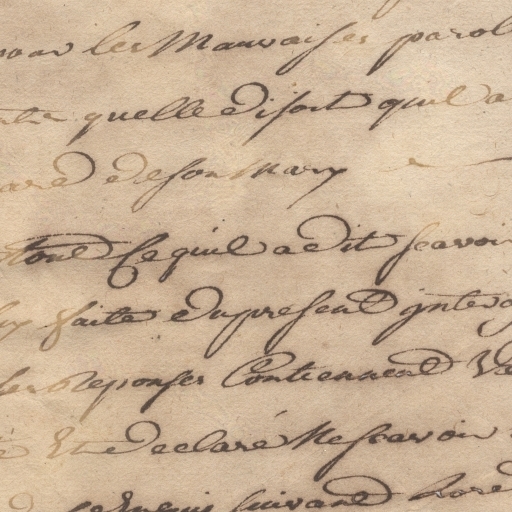 pour les Mauvaises parol
quelle disoit quil a
de son Mary
tout Ce quil a dit scavoir
faite du present interog
ses Reponses Contiennent Ve
Et a declaré Ne scavoir
suivant